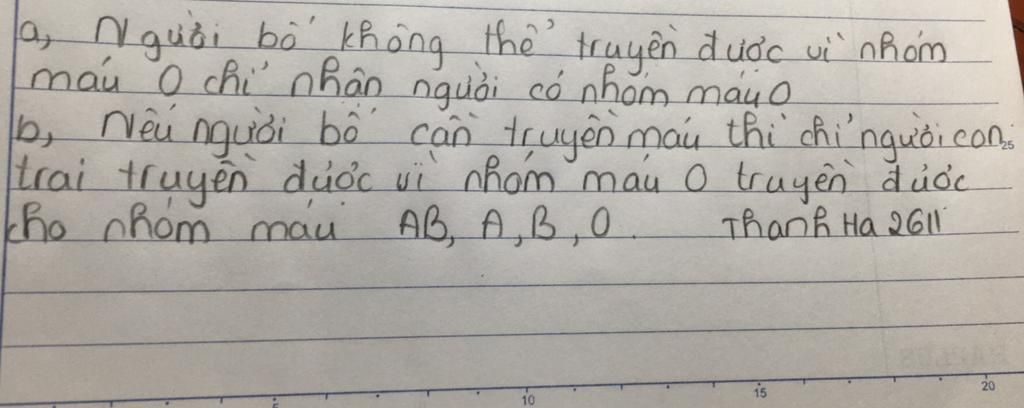 a, Người bố không thể truyền được vì nhóm
máu O chỉ nhận người có nhóm máu O
b, Nếu người bố cần truyền máu thì chỉ người con
25
trai truyền được vì nhóm máu O truyền được
cho nhóm máu AB, A, B, O. Thanh Ha 2611
10 15 20